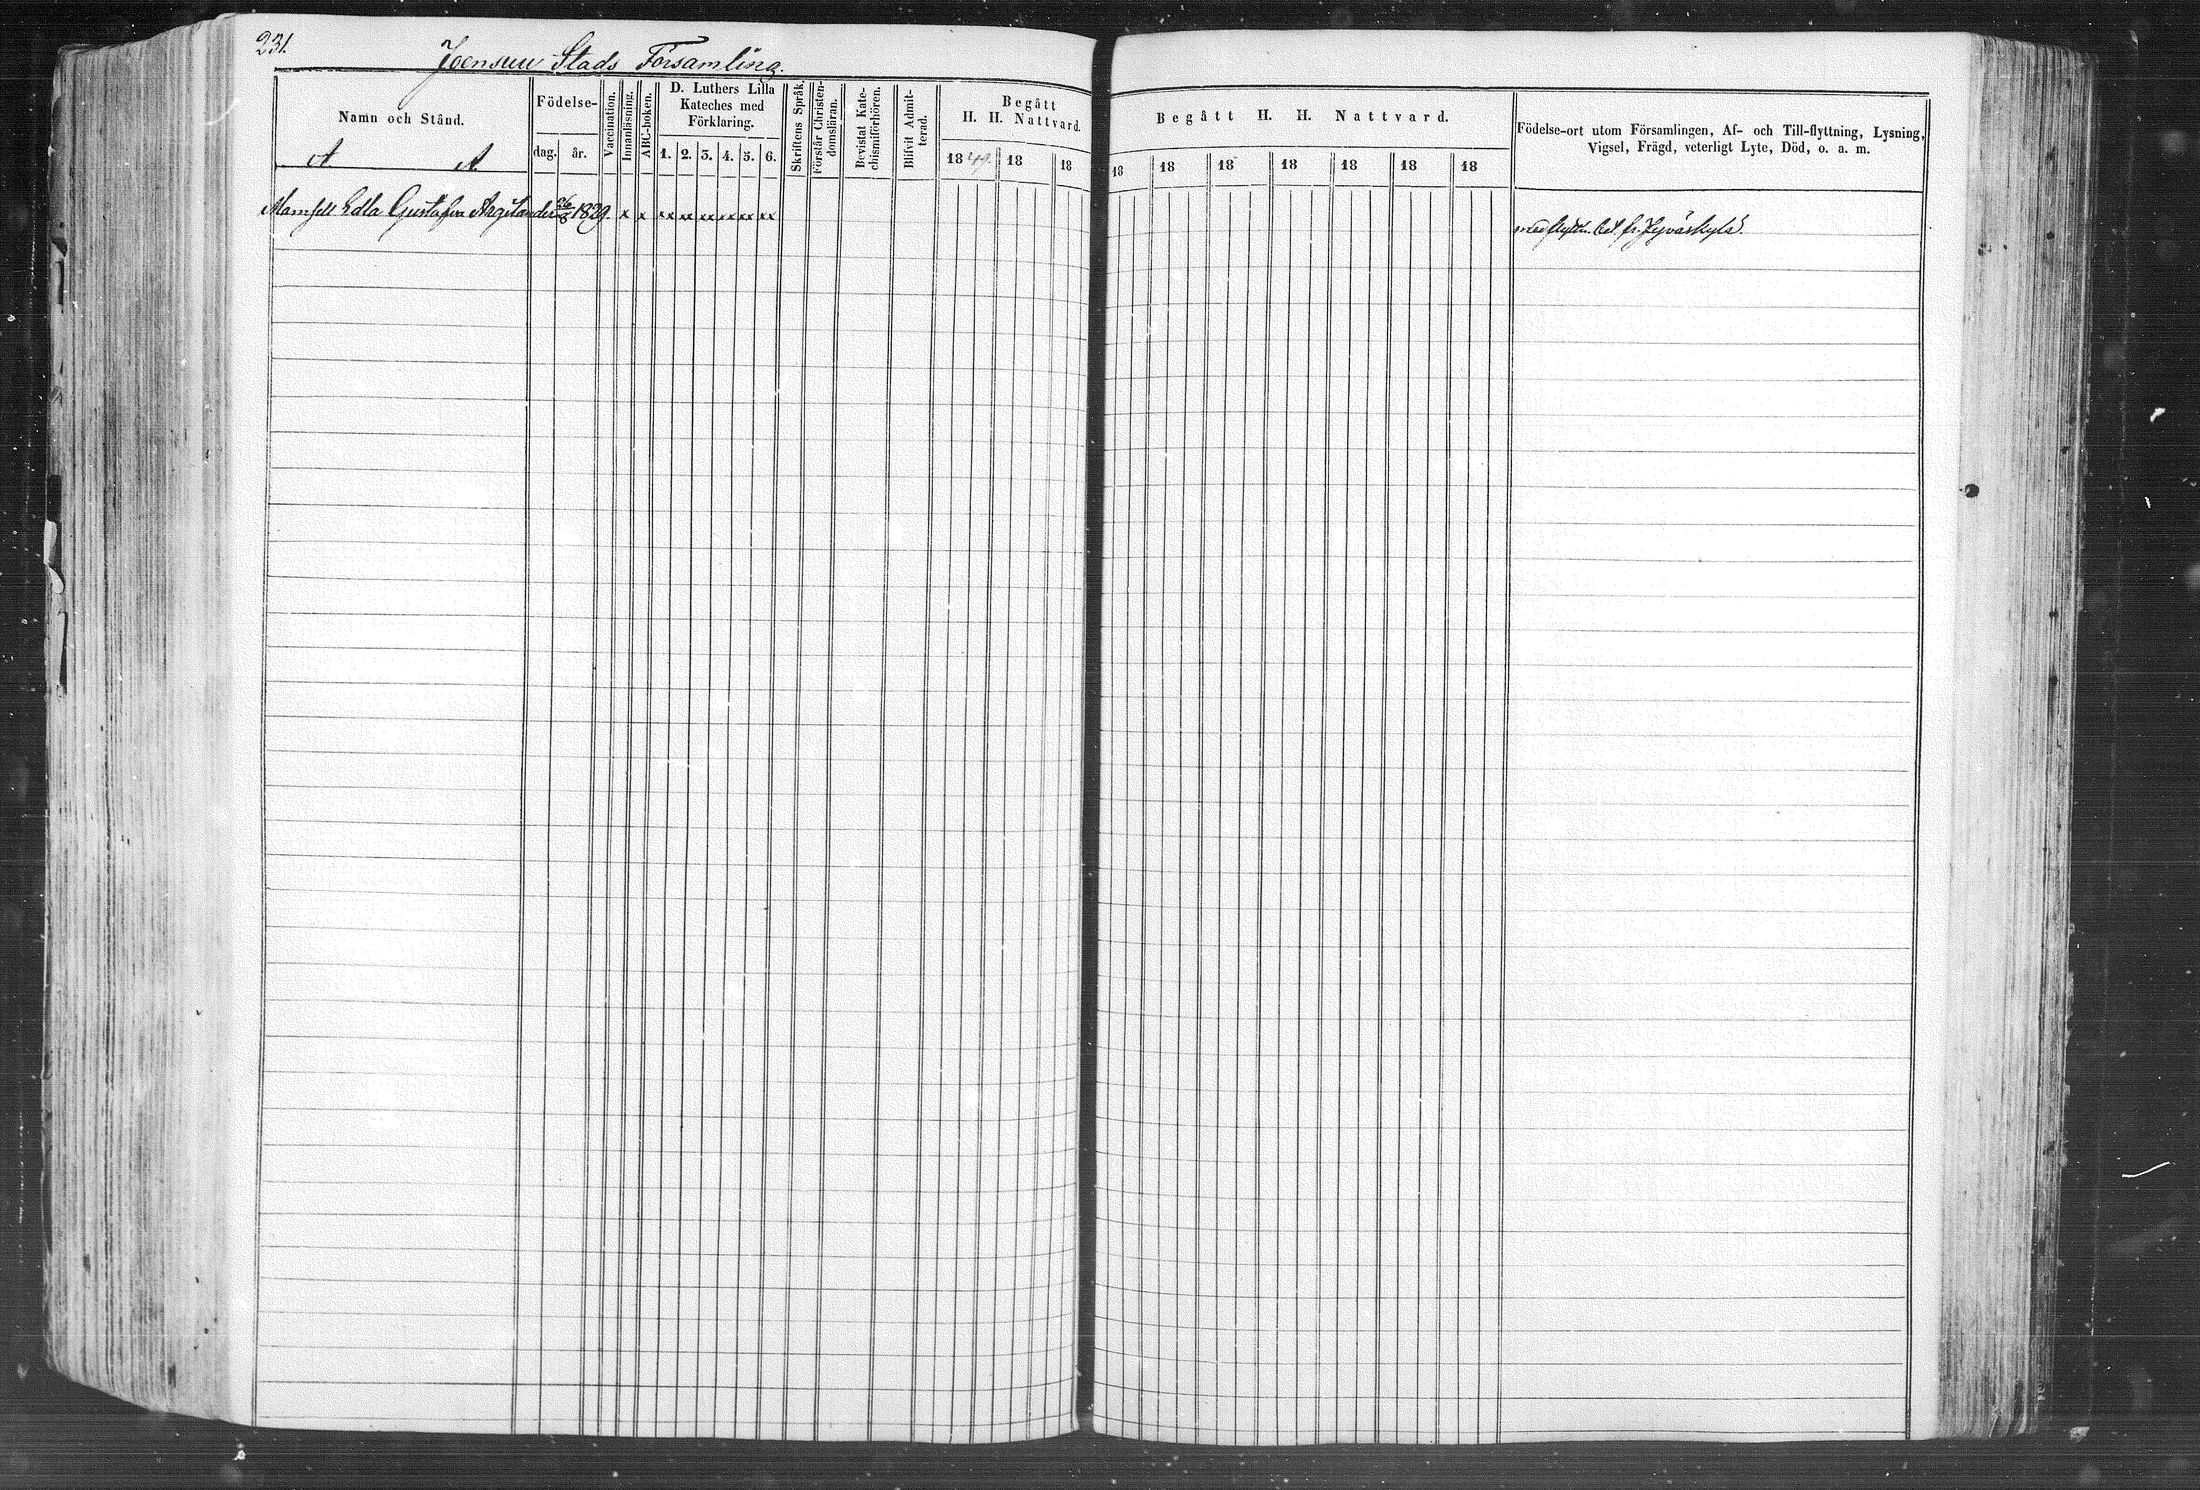 231.
Joensuu Stads Församling.
Namn och Stånd.
A A.
Födelse-
dag. år.
Vaccination.
Innanläsning.
ABC-boken.
D. Luthers Lilla
Kateches med
Förklaring.
1. 2. 3. 4. 5. 6.
Skriftens Språk.
Förstår Christen-
domsläran.
Bevistat Kate-
chismiförhören.
Blifvit Admit-
terad.
Begått
H. H. Nattvard.
1849. 18 18
Begått H. H. Nattvard.
18 18 18 18 18 18 18
Födelse-ort utom Församlingen, Af- och Till-flyttning, Lysning,
Vigsel, Frägd, veterligt Lyte, Död, o. a. m.
Mamsell Edla Gustafva Argilander 26/8 1829. x x xx xx xx xx xx xx
med flyttn. bet. fr. Jyväskylä.